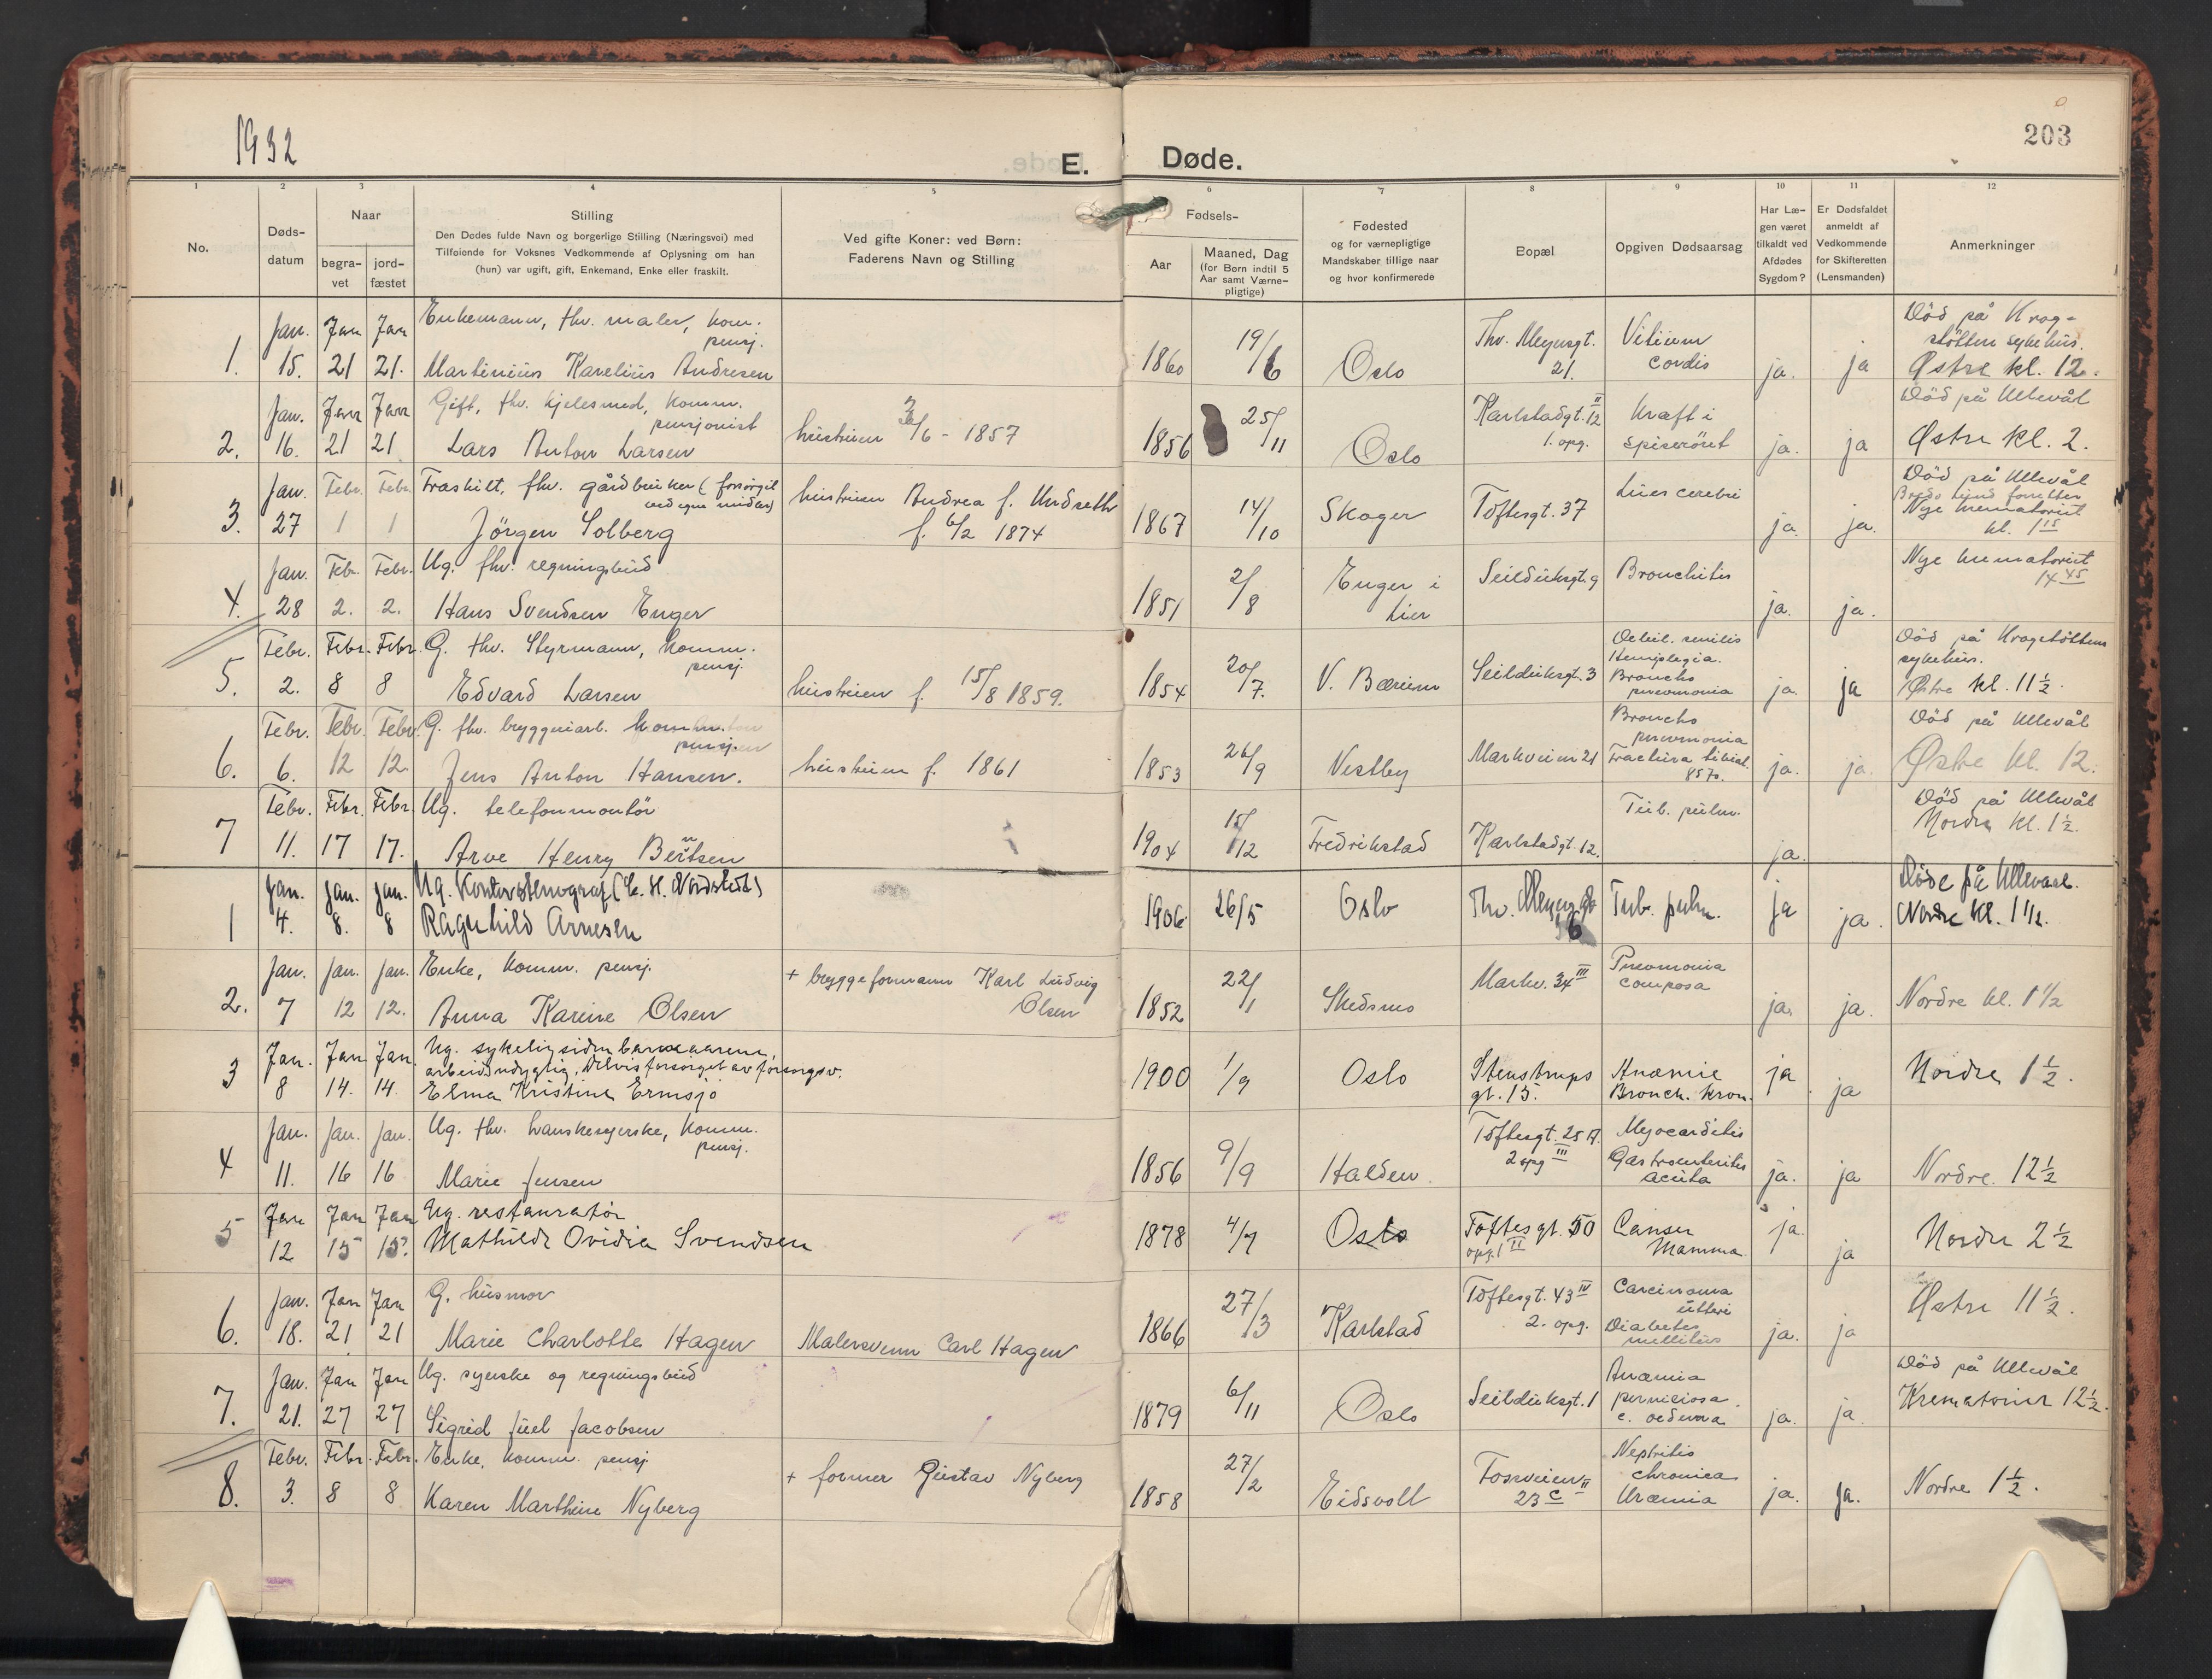 1932
E. Døde.
203
1 2 3 4 5 6 7 8 9 10 11 12
No.
Døds-
datum
Naar
begra-
vet
jord-
fæstet
Stilling
Den Dødes fulde Navn og borgerlige Stilling (Næringsvei) med
Tilføiende for Voksnes Vedkommende af Oplysning om han
(hun) var ugift, gift, Enkemand, Enke eller fraskilt.
Ved gifte Koner: ved Børn:
Faderens Navn og Stilling
Fødsels-
Aar
Maaned, Dag
(for Børn indtil 5
Aar samt Værne-
pligtige)
Fødested
og for værnepligtige
Mandskaber tillige naar
og hvor konfirmerede
Bopæl
Opgiven Dødsaarsag
Har Læ-
gen været
tilkaldt ved
Afdødes
Sygdom?
Er Dødsfaldet
anmeldt af
Vedkommende
for Skifteretten
(Lensmanden)
Anmerkninger
1. Jan. 15. Jan 21 Jan 21. Enkemann, fhv. maler, kom. pensj.
Martinius Karelius Andresen
1860 19/6 Oslo Thv. Meyersgt. 21. Vitium cordis ja. ja Död på Krog-
støtten sykehus.
Østre kl. 12.
2. Jan. 16. Jan 21 Jan 21 Gift, fhv. kjelesmed, komm. pensjonist
Lars Anton Larsen
hustruen /6 - 1857
1856 25/11 Oslo Karlstadgt. 12 II 1. opg. Kræft i spiserøret ja. ja Död på Ullevål
Østre kl. 2.
3. Jan. 27 Febr. 1 Febr. 1 Fraskilt, fhv. gårdbruker (forsörget ved egne midler)
Jörgen Solberg
hustruen Andrea f. Undseth
f. 6/2 1874
1867 14/10 Skoger Toftesgt. 37 Lues cerebri ja. ja. Död på Ullevål
Nye krematoriet
kl. 1 15
4. Jan. 28 Febr. 2. Febr. 2. Ug. fhv. regningsbud
Hans Svendsen Enger
1851 2/8 Enger i Lier Seilduksgt. 9 Bronchitis ja. ja. Nye krematoriet
14 45
5. Febr. 2. Febr. 8 Febr. 8 G. fhv. Styrmann, komm. pensj.
Edvard Larsen
hustruen f. 15/8 1859.
1854 20/7. V. Bærum Seilduksgt. 3 Debil. senilis
Hemiplegia.
Broncho
pneumonia ja. ja Död på Krogstøttens
sykehus.
Østre kl. 11 1/2.
6. Febr. 6. Febr. 12 Febr. 12 G. fhv. bryggeriarb. komm. pensj.
Jens Anton Hansen.
hustruen f. 1861
1853 26/9 Vestby Markveien 21 Broncho
pneumonia ja. ja. Död på Ullevål
Østre kl. 12.
7 Febr. 11. Febr. 17 Febr. 17. Ug. telefonmontör
Arve Henry Berntsen
1904 15/12 Fredrikstad Karlstadgt. 12. Tub. pulm. ja. Död på Ullevål
Nordre kl. 1 1/2.
1 Jan. 4. Jan. 8. Jan. 8 Ug. Kontorstenograf
Ragnhild Arnesen
1906 26/5 Oslo Thv. Meyersgt. Tub. pulm. ja ja. Døde på Ullevaal.
Nordre kl. 1 1/2.
2. Jan. 7 Jan. 12 Jan. 12. Enke, komm. pensj.
Anna Karine Olsen
+ bryggeformann Karl Ludvig
Olsen
1852 22/1 Skedsmo Markv. 34 III Pneumonia
composa ja. ja. Nordre kl. 1 1/2
3 Jan. 8 Jan 14. Jan 14. Ug. sykelig siden barneaarene,
arbeidsudyglig, Delvis forsørget av forsorgsv.
Elma Kristine Ermsjö
1900 1/9 Oslo Stenstrups
gt. 15. Anæmie
Bronch. kron. ja ja Nordre 1 1/2.
4 Jan. 11. Jan. 16 Jan. 16 Ug. fhv. hanskesyerske, komm. pensj.
Marie Jensen
1856 9/9 Halden Toftesgt. 25 A.
2 opg III Myocarditis
Gastroenteritis
acuta ja. ja Nordre. 12 1/2
5 Jan 12 Jan 15 Jan 15. Ug. restauratör
Mathilde Ovidia Svendsen
1878 4/7 Oslo Toftes gt. 50
opg. 1 II Canser
Mamma ja ja Nordre 2 1/2
6. Jan. 18. Jan 21 Jan 21 G. husmor
Marie Charlotte Hagen
Malersvenn Carl Hagen
1866 27/3 Karlstad Toftesgt. 43 IV
2. opg. Carcinoma
uteri
Diabetes
mellitus ja. ja Østre 11 1/2.
7. Jan. 21. Jan 27 Jan 27 Ug. syerske og regningsbud
Sigrid Juel Jacobsen
1879 6/11 Oslo Seilduksgt. 1 Anæmia
perniciosa
c. oedema ja. ja. Död på Ullevål
Krematoriet 12 1/2.
8. Febr. 3. Febr. 8 Febr. 8 Enke, komm. pensj
Karen Marthine Nyberg
+ former Gustav Nyberg
1858 27/2 Eidsvoll Fossveien
23 C II Nephritis
chronica
Uræmia ja. ja. Nordre 1 1/2.